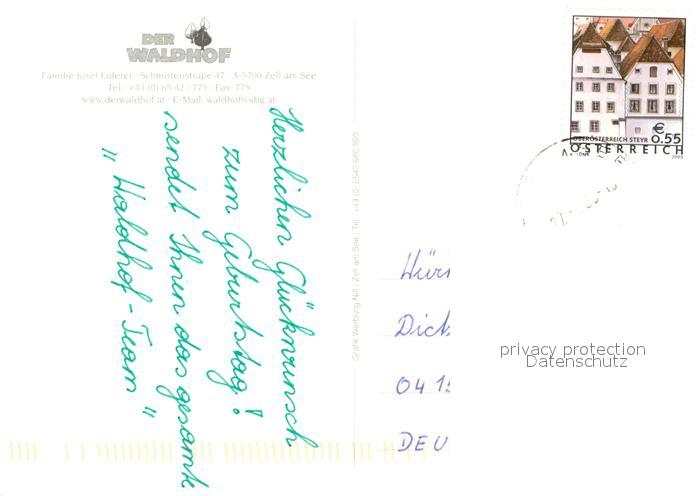 DER
WALDHOF
Familie Josef Loferer · Schmittenstraße 47 · A-5700 Zell am See
Tel.: +43 (0) 65 42 / 775 · Fax: 775
www.derwaldhof.at · E-Mail: waldhof@sbg.at
Herzlichen Glückwunsch
zum Geburtstag!
sendet Ihnen das gesamte
"Waldhof-Team"
Grafik Werbung Nill | Zell am See | Tel.: +43 (0) 6542
€
0.55
OBERÖSTERREICH STEYR
ÖSTERREICH
2003
Hür
Dick
04 15
DEU
privacy protection
Datenschutz